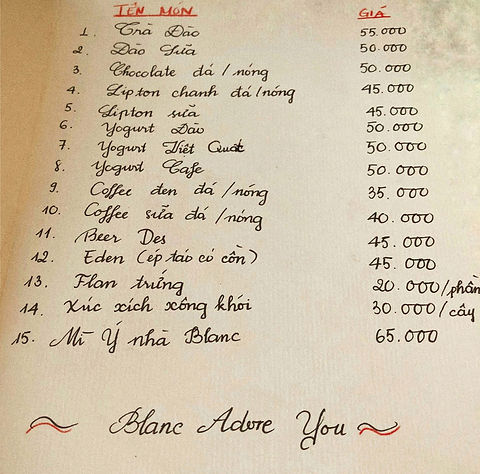 TÊN MÓN GIÁ
1. Trà Đào 55.000
2. Đào Sữa 50.000
3. Chocolate đá / nóng 50.000
4. Lipton chanh đá / nóng 45.000
5. Lipton sữa 45.000
6. Yogurt Đào 50.000
7. Yogurt Việt Quất 50.000
8. Yogurt Cafe 50.000
9. Coffee đen đá / nóng 35.000
10. Coffee sữa đá / nóng 40.000
11. Beer Des 45.000
12. Eden (ép táo có cồn) 45.000
13. Flan trứng 20.000/phần
14. Xúc xích xông khói 30.000/cây
15. Mì Ý nhà Blanc 65.000
Blanc Adore You